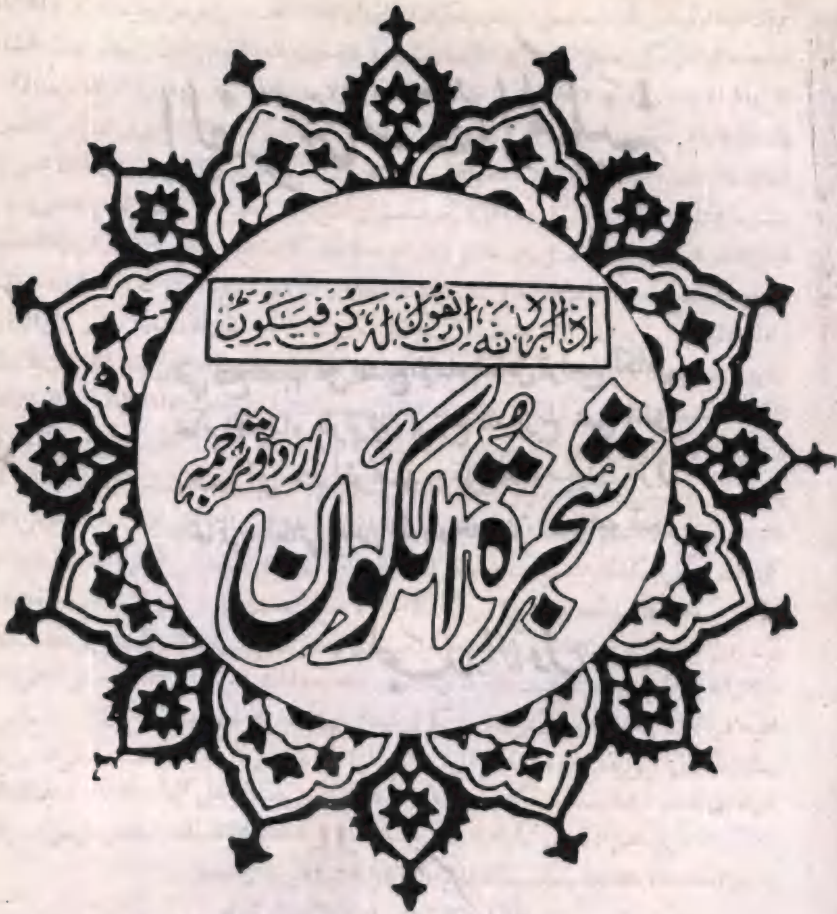 اذا اردنٰه ان نقول له كن فيكون
شجرة الكون
اردو ترجمہ